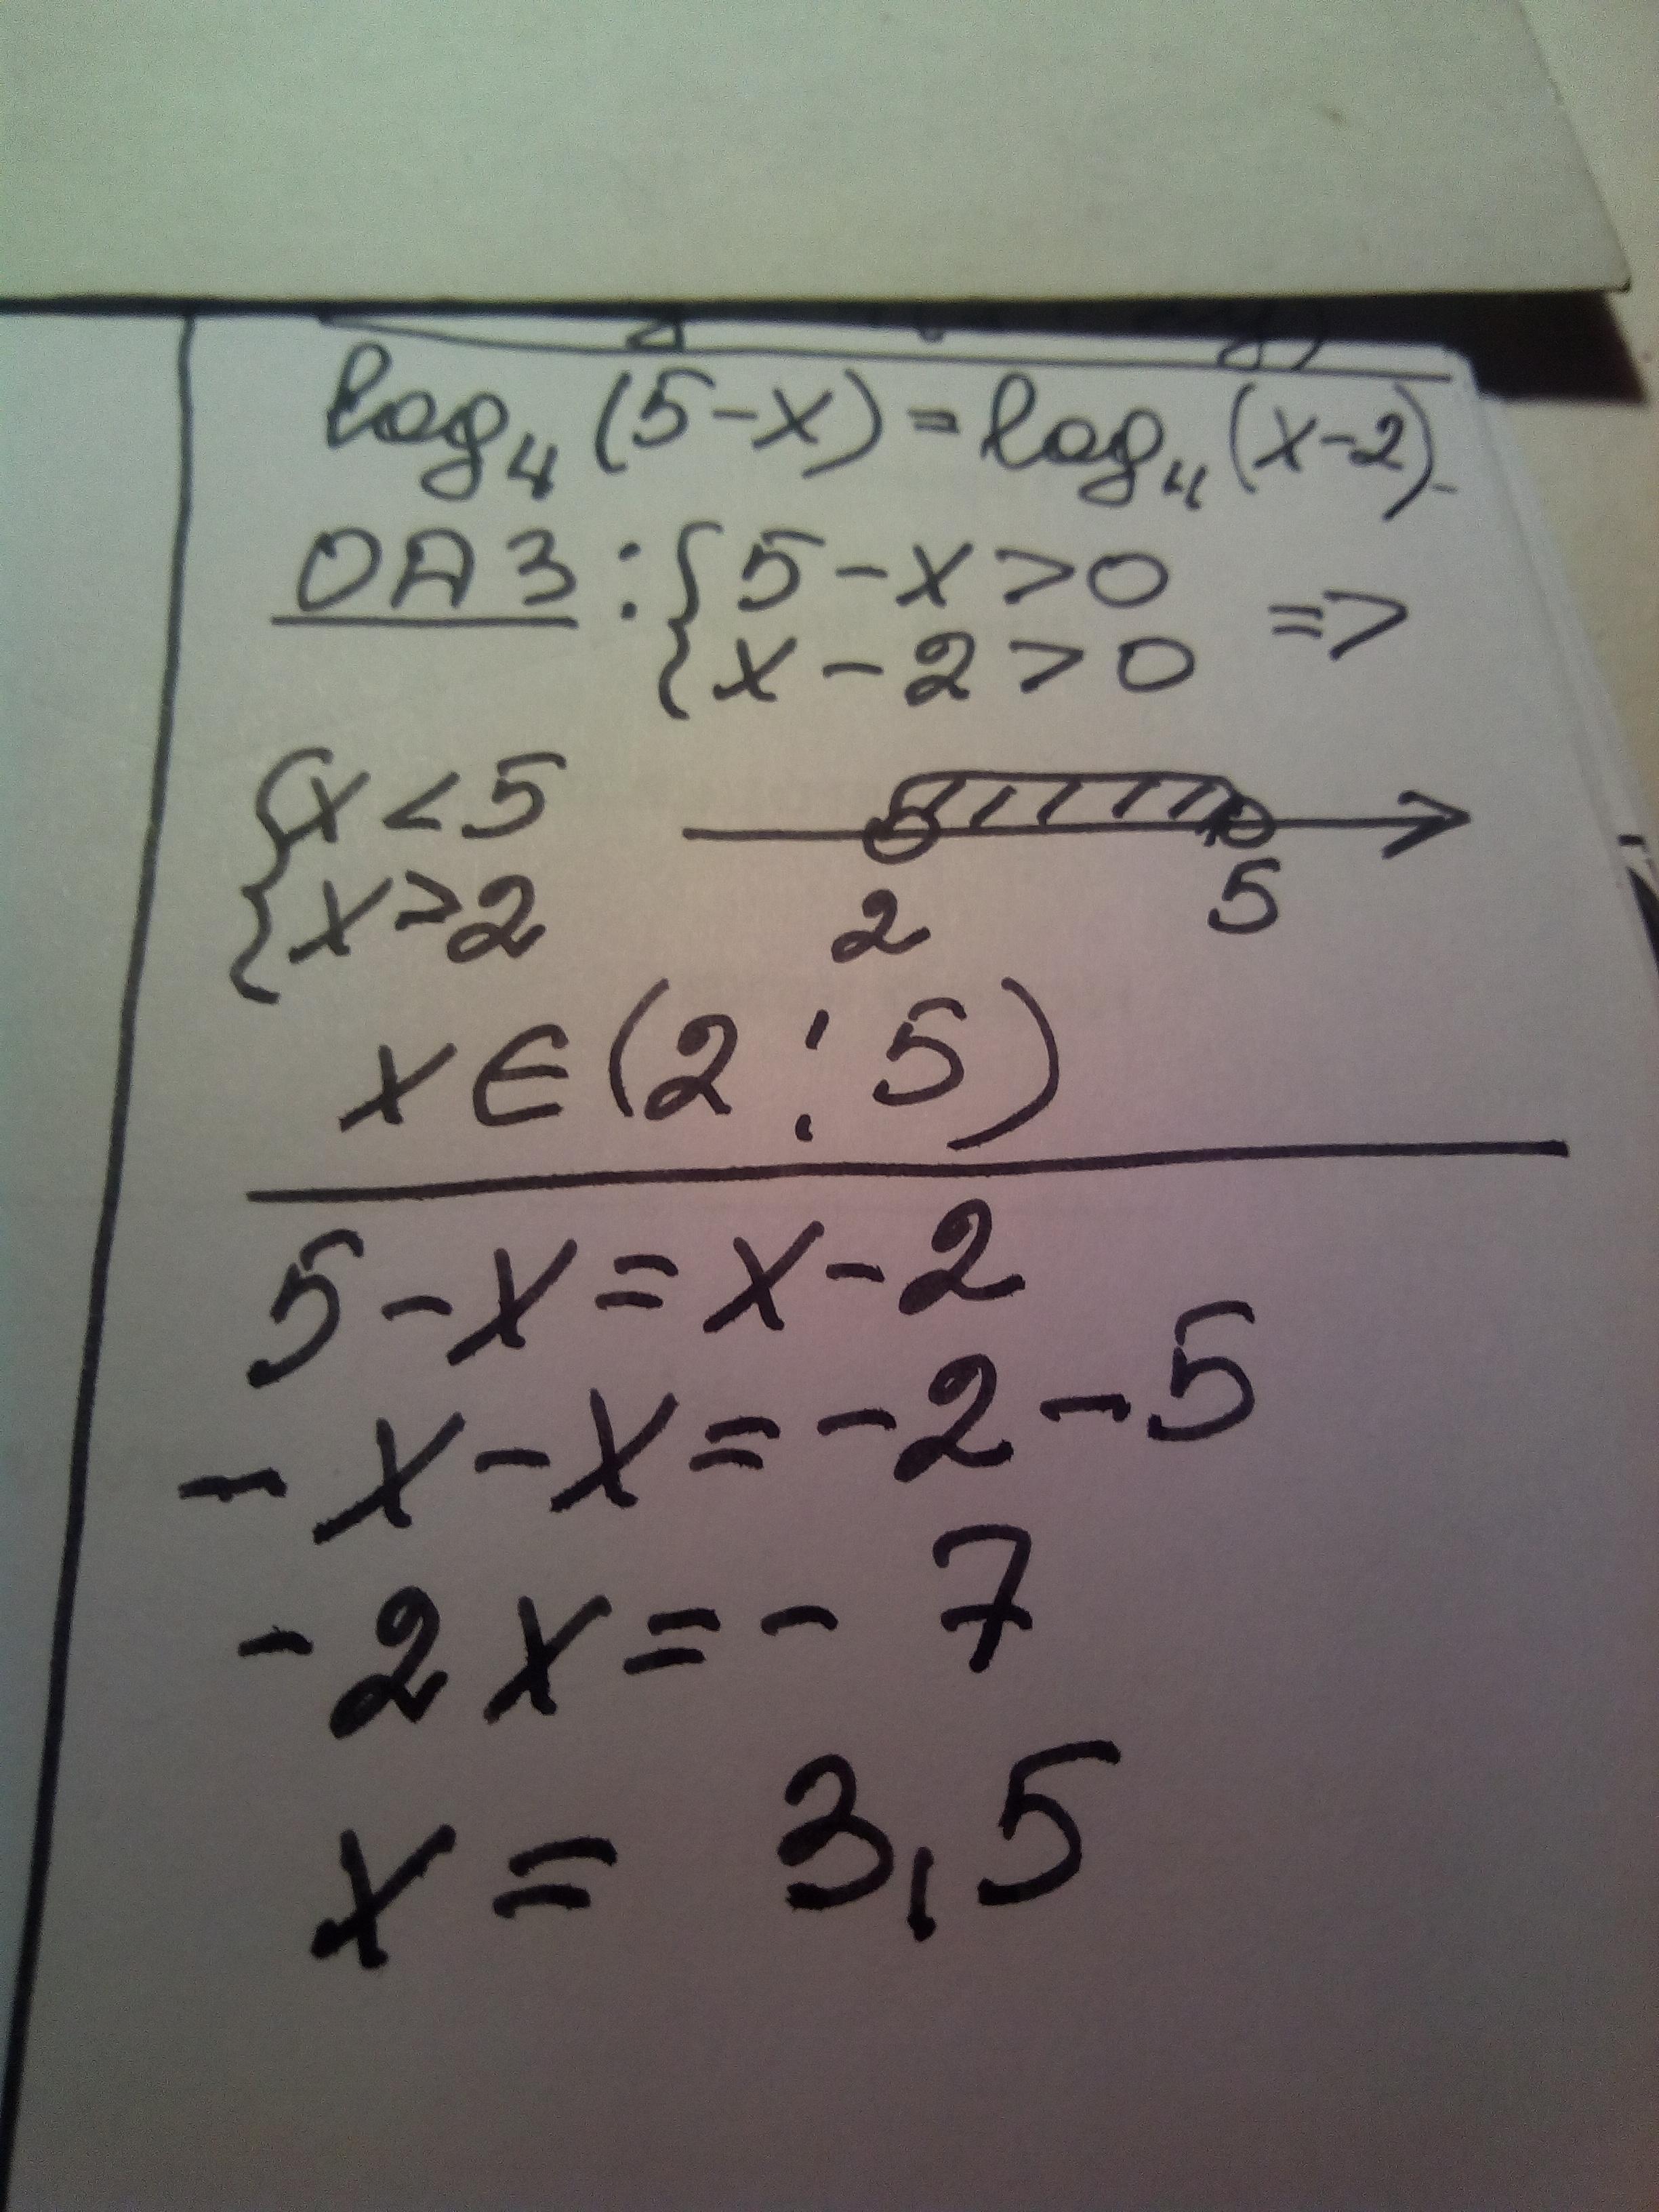 log₄(5-x)=log₄(x-2)
ОДЗ: {5-x>0
{x-2>0 =>
{x<5
{x>2
2 5
x∈(2;5)
5-x=x-2
-x-x=-2-5
-2x=-7
x=3,5